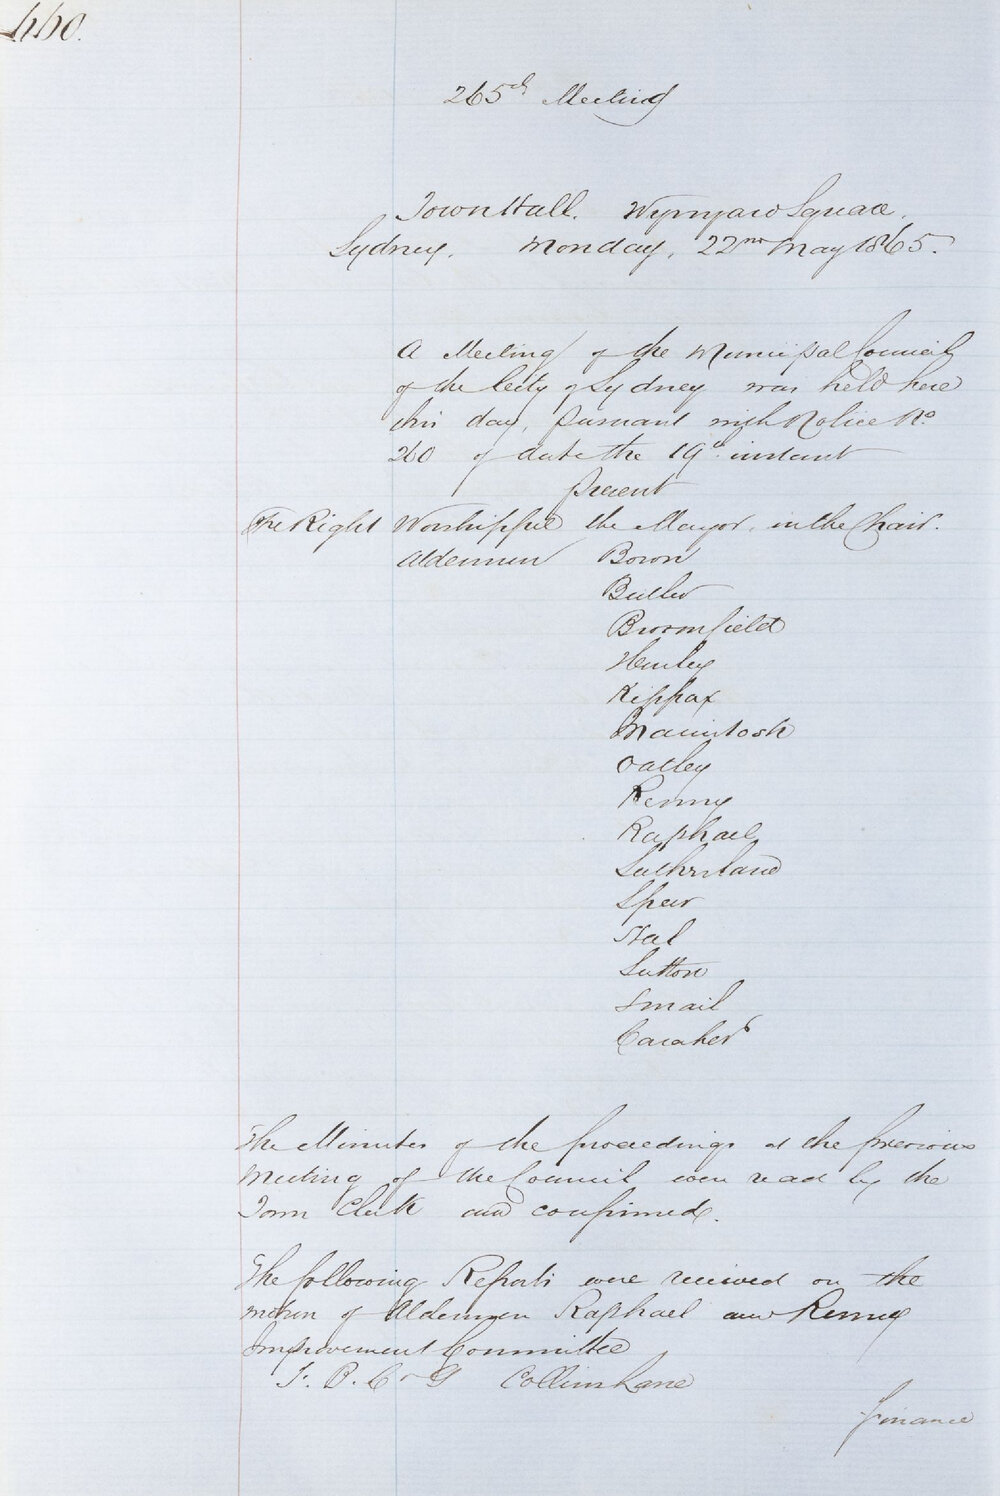 440.
265th Meeting
Town Hall. Wynyard Square.
Sydney. Monday, 22nd May 1865.
A Meeting of the Municipal Council
of the City of Sydney was held here
this day, pursuant with Notice No
260 of date the 19th instant
Present
The Right Worshipful the Mayor, in the Chair.
Aldermen Bown
Butler
Broomfield
Hurley
Kippax
Macintosh
Oatley
Renny
Raphael
Sutherland
Speer
Steel
Sutton
Smail
Caraher
The Minutes of the proceedings at the previous
Meeting of the Council were read by the
Town Clerk and confirmed.
The following Reports were received on the
motion of Aldermen Raphael and Renny
Improvement Committee
Collins Lane
Finance